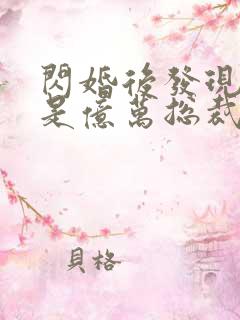 閃婚後發現
是億萬總裁
貝格